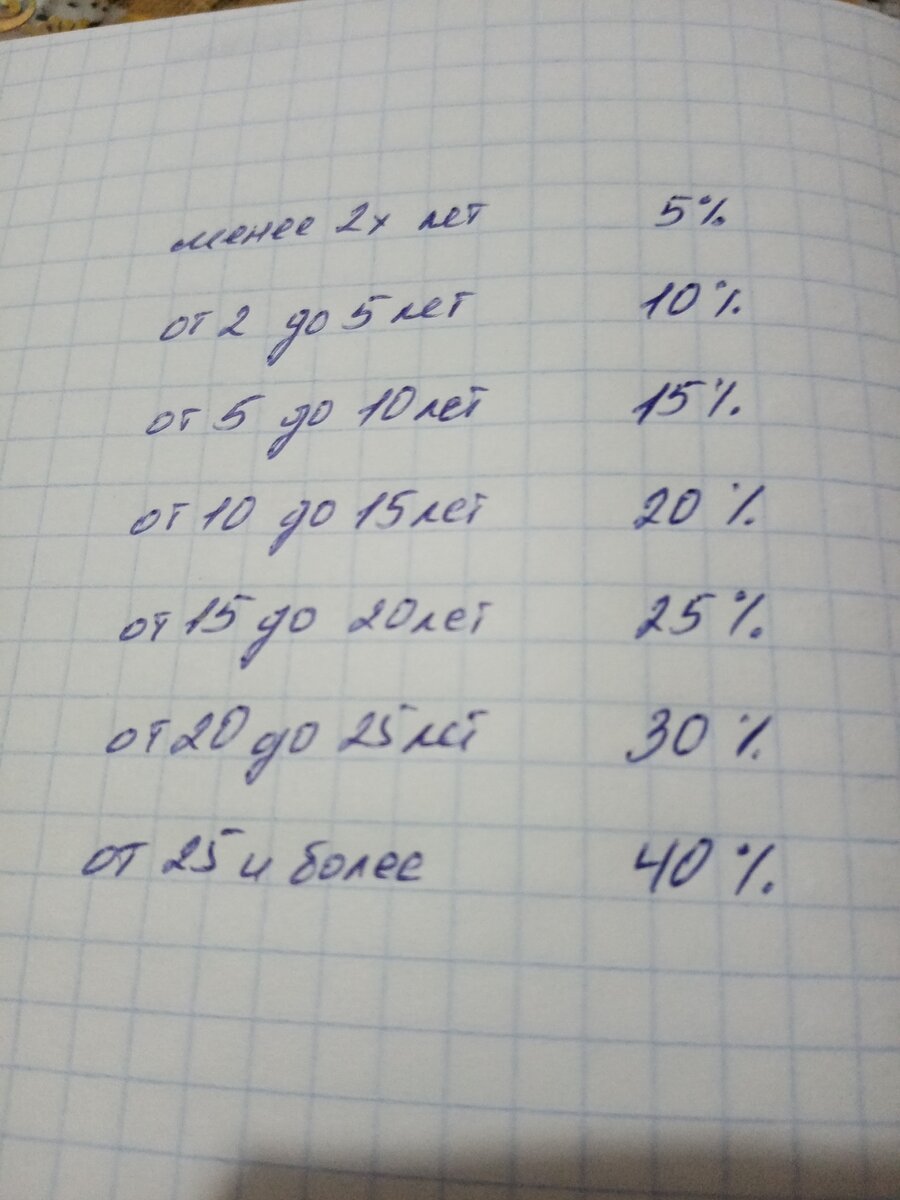 менее 2х лет 5%
от 2 до 5 лет 10%
от 5 до 10 лет 15%
от 10 до 15 лет 20%
от 15 до 20 лет 25%
от 20 до 25 лет 30%
от 25 и более 40%